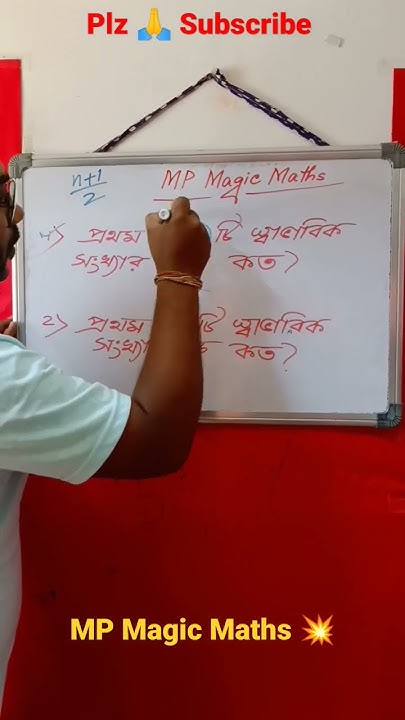 Plz 🙏 Subscribe
n+1
2
MP Magic Maths
১) প্রথম টি স্বাভাবিক
সংখ্যার কত?
২) প্রথম টি স্বাভাবিক
কত?
MP Magic Maths 💥